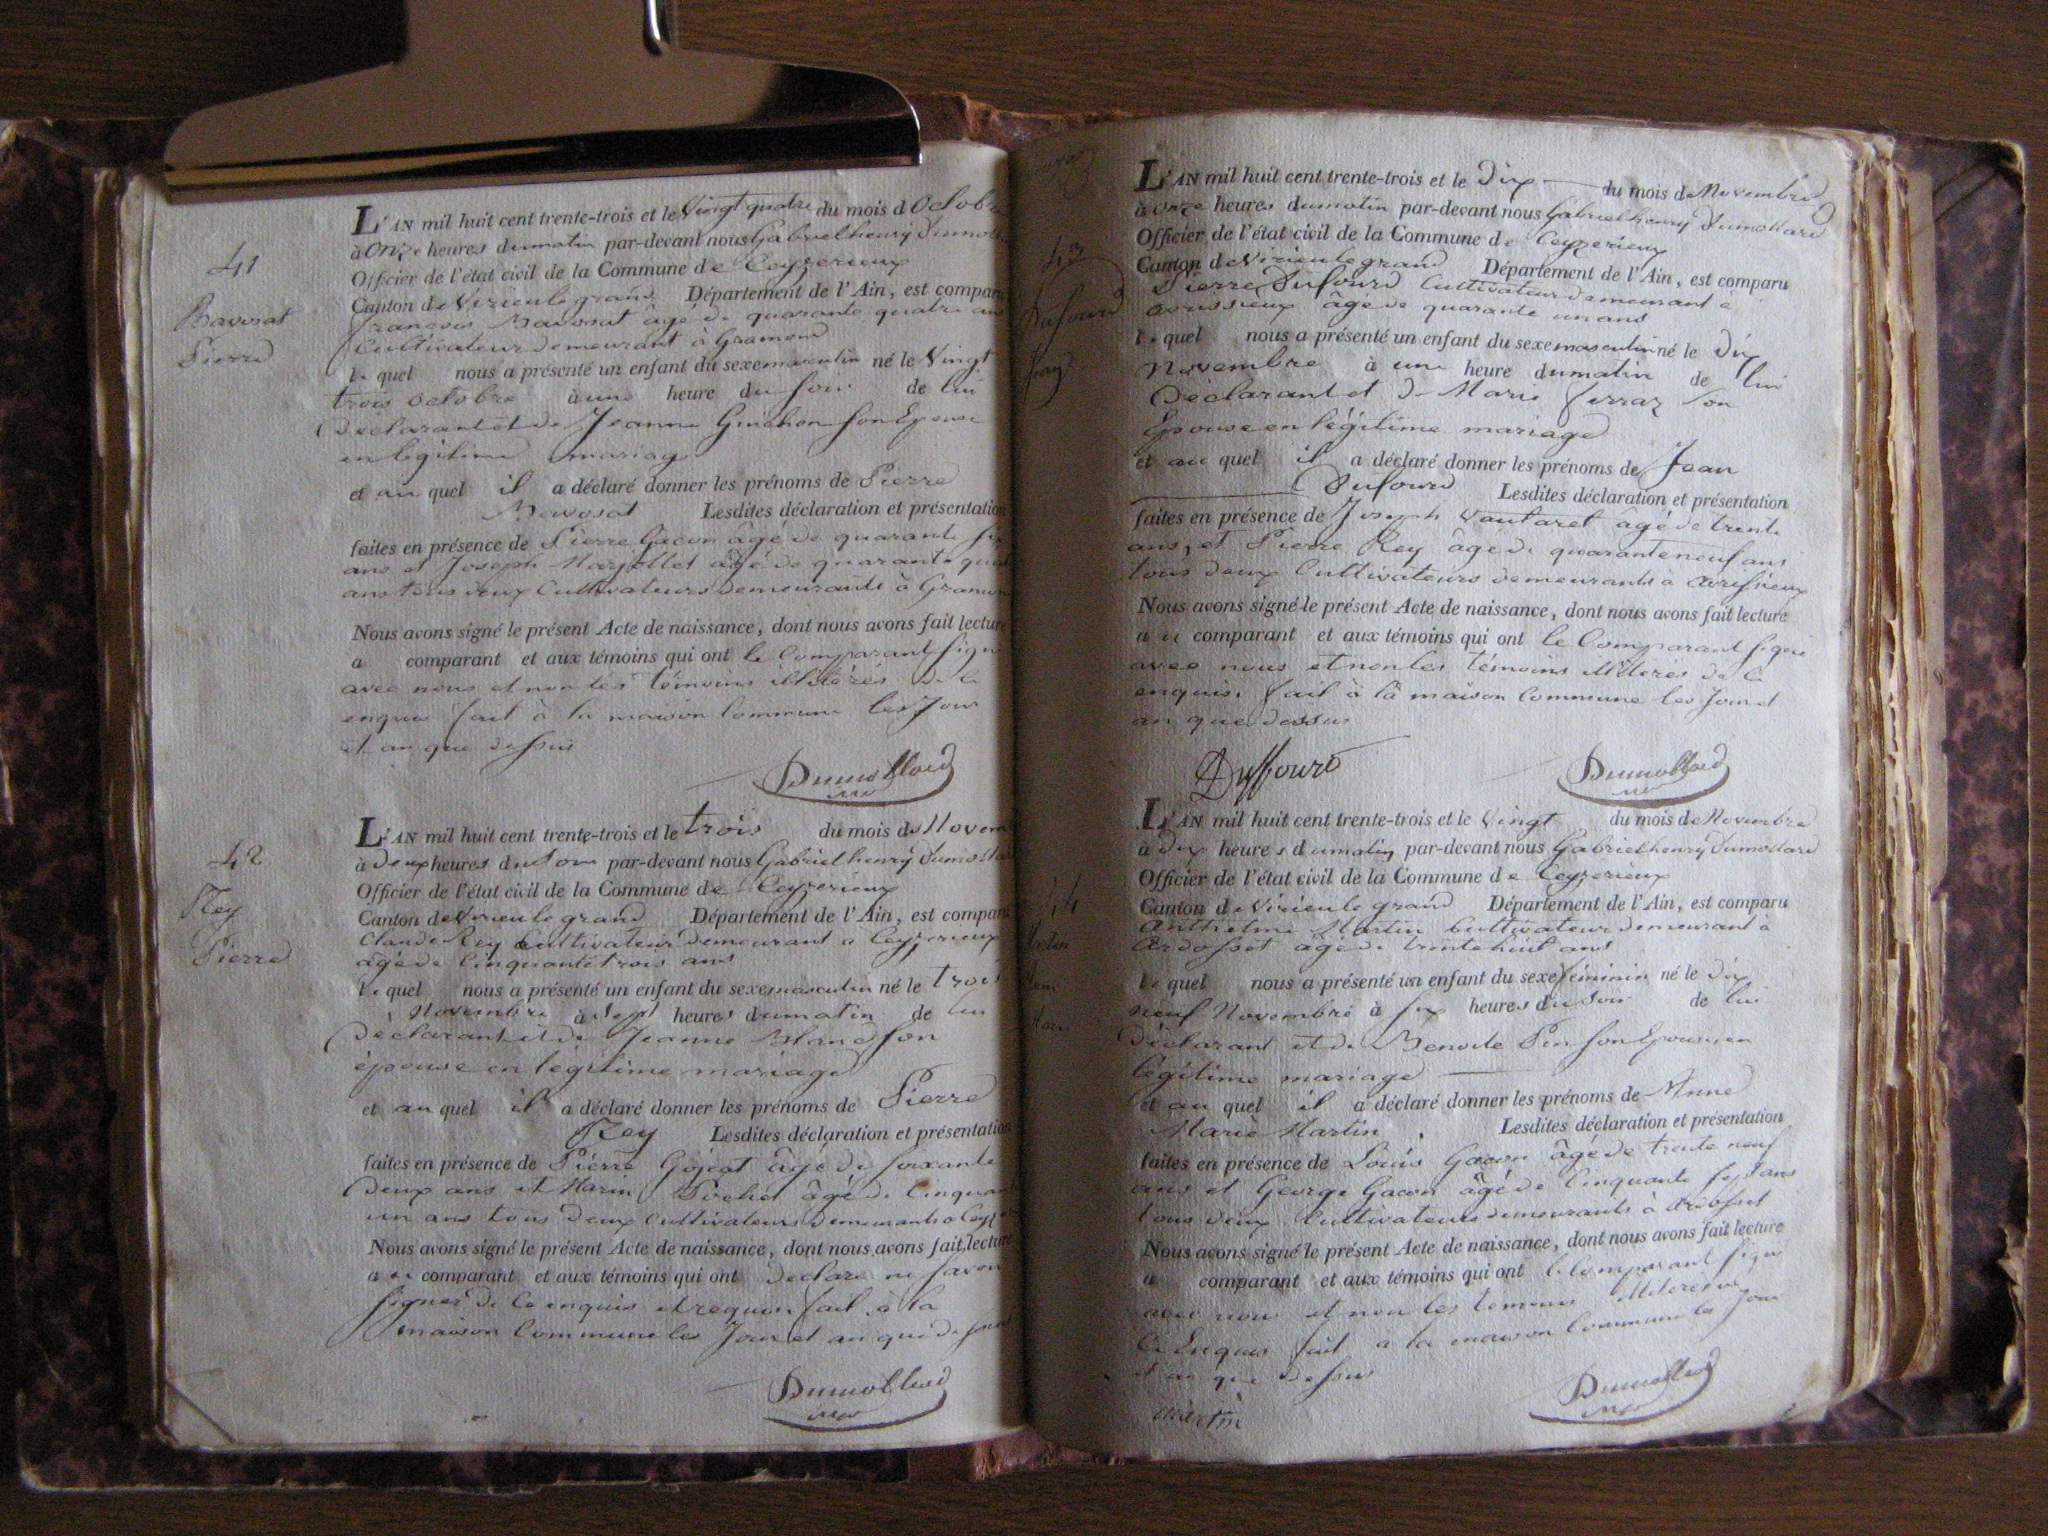 41
Pierre
L'AN mil huit cent trente-trois et le Vingt quatre du mois d Octobre
à Onze heures du matin par-devant nous Gabriel henry Dumoll
Officier de l'état civil de la Commune de Ceyzerieux
Canton de Virieu le grand Département de l'Ain, est comparu
françois âgé de quarante quatre ans
Cultivateur demeurant à Gramond
le quel nous a présenté un enfant du sexe masculin né le Vingt
trois octobre à une heure du soir de lui
déclarant et de Jeanne Guichon son Epouse
en légitime mariage
et au quel il a déclaré donner les prénoms de Pierre
Lesdites déclaration et présentation
faites en présence de Pierre Gacon âgé de quarante six
ans et Joseph âgé de quarante quat
ans tous deux Cultivateurs demeurants à Gramon
Nous avons signé le présent Acte de naissance, dont nous avons fait lecture
a comparant et aux témoins qui ont le Comparant signé
avec nous et non les témoins illitérés de ce
enquis fait à la maison Commune les Jour
et an que dessus
Dumollard
42
Rey
Pierre
L'AN mil huit cent trente-trois et le trois du mois de Novem
à deux heures du soir par-devant nous Gabriel henry Dumollar
Officier de l'état civil de la Commune de Ceyzerieux
Canton de Virieu le grand Département de l'Ain, est comparu
Claude Rey Cultivateur demeurant a Ceyzerieux
âgé de Cinquante trois ans
le quel nous a présenté un enfant du sexe masculin né le trois
Novembre à Sept heures du matin de lui
déclarant et de Jeanne Blanc son
épouse en légitime mariage
et au quel il a déclaré donner les prénoms de Pierre
Rey Lesdites déclaration et présentation
faites en présence de Pierre Gojeat âgé de soixante
deux ans et Marin Pochet âgé de Cinquan
un ans tous deux Cultivateurs demeurants a Ceyz
Nous avons signé le présent Acte de naissance, dont nous avons fait lecture
a u comparant et aux témoins qui ont déclaré ne savoir
signer de ce enquis et requis fait à la
maison Commune les Jour et an que dessus
Dumollard
43
Dufourd
Jean
L'AN mil huit cent trente-trois et le Dix du mois de Novembre
à onze heures du matin par-devant nous Gabriel henry Dumollard
Officier de l'état civil de la Commune de Ceyzerieux
Canton de Virieu le grand Département de l'Ain, est comparu
Pierre Dufourd Cultivateur demeurant à
avrissieux âgé de quarante un ans
le quel nous a présenté un enfant du sexe masculin né le dix
Novembre à une heure du matin de lui
Déclarant et de Marie ferraz son
Epouse en légitime mariage
et au quel il a déclaré donner les prénoms de Jean
Dufourd Lesdites déclaration et présentation
faites en présence de Joseph Vautaret âgé de trente
ans, et Pierre Rey âgé de quarante neuf ans
tous deux Cultivateurs demeurants à avrissieux
Nous avons signé le présent Acte de naissance, dont nous avons fait lecture
a u comparant et aux témoins qui ont le Comparant signé
avec nous et non les témoins illitérés de ce
enquis fait à la maison Commune les Jour et
an que dessus
Duffourd
Dumollard
44
Martin
Marie
L'AN mil huit cent trente-trois et le Vingt du mois de Novembre
à dix heures du matin par-devant nous Gabriel henry Dumollard
Officier de l'état civil de la Commune de Ceyzerieux
Canton de Virieu le grand Département de l'Ain, est comparu
Anthelme Martin Cultivateur demeurant à
Ardosset âgé de trente huit ans
le quel nous a présenté un enfant du sexe féminin né le dix
neuf Novembre à six heures du soir de lui
déclarant et de Benoite Pin son Epouse, en
légitime mariage
et au quel il a déclaré donner les prénoms de Anne
Marie Martin Lesdites déclaration et présentation
faites en présence de Louis Gacon âgé de trente neuf
ans et George Gacon âgé de Cinquante sept ans
tous deux Cultivateurs demeurants à
Nous avons signé le présent Acte de naissance, dont nous avons fait lecture
a comparant et aux témoins qui ont le Comparant signé
avec nous et non les temoins
Ce Enquis fait a la maison Commune les Jour
et an que dessus
Martin
Dumollard